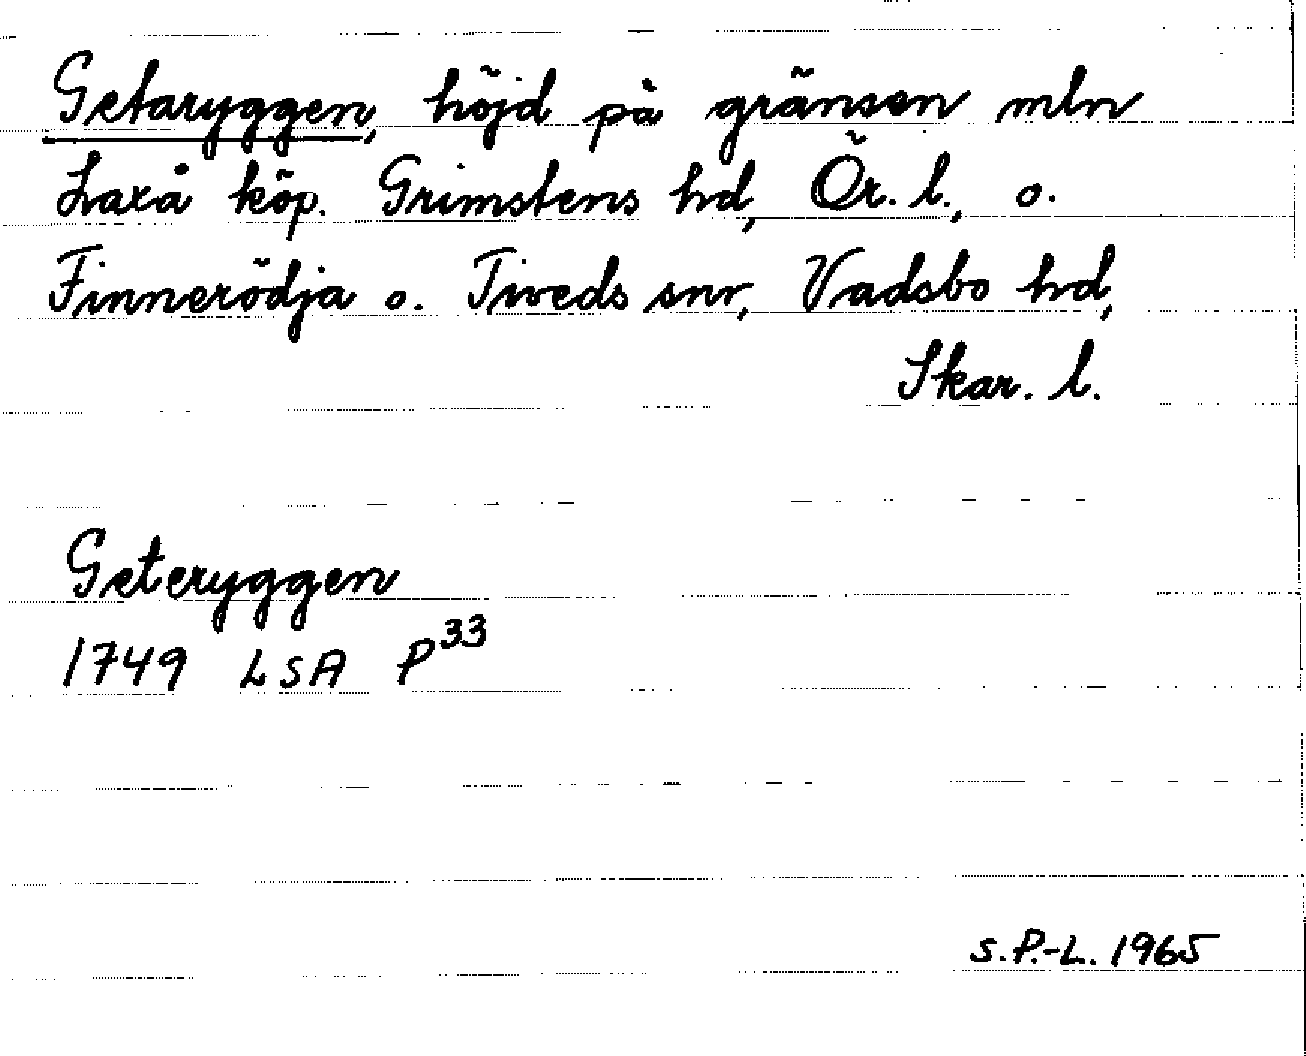 Getaryggen, höjd på gränsen mln
Laxå köp. Grimstens hd, Ör. l., o.
Finnerödja o. Tiveds snr, Vadsbo hd,
Skar. l.
Geteryggen
1749 LSA P33
S.P.-L. 1965